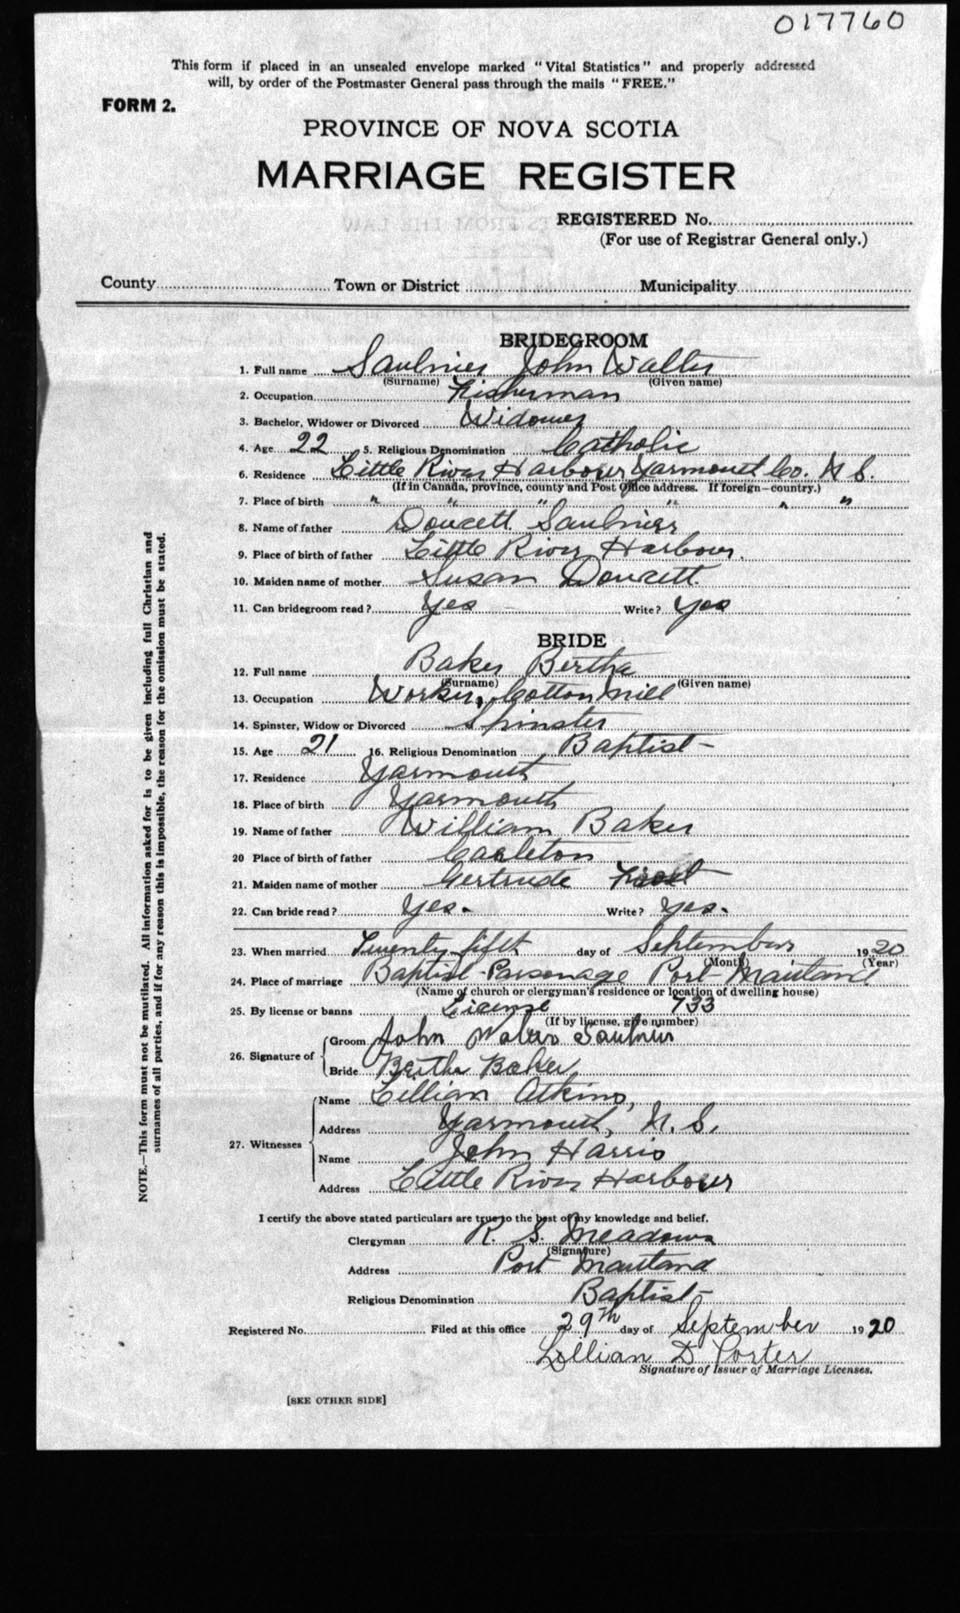 017760
This form if placed in an unsealed envelope marked "Vital Statistics" and properly addressed
will, by order of the Postmaster General pass through the mails "FREE."
FORM 2.
PROVINCE OF NOVA SCOTIA
MARRIAGE REGISTER
REGISTERED No.
(For use of Registrar General only.)
County Town or District Municipality
BRIDEGROOM
1. Full name Saulnier John Walter
(Surname) (Given name)
2. Occupation Fisherman
3. Bachelor, Widower or Divorced Widower
4. Age 22 5. Religious Denomination Catholic
6. Residence Little River Harbour Yarmouth Co. N.S.
(If in Canada, province, county and Post Office address. If foreign—country.)
7. Place of birth " " " " " "
8. Name of father Doucett Saulnier
9. Place of birth of father Little River Harbour.
10. Maiden name of mother Susan Doucett
11. Can bridegroom read? Yes Write? Yes
BRIDE
12. Full name Baker Bertha
(Surname) (Given name)
13. Occupation Worker, Cotton mill
14. Spinster, Widow or Divorced Spinster
15. Age 21 16. Religious Denomination Baptist
17. Residence Yarmouth
18. Place of birth Yarmouth
19. Name of father William Baker
20 Place of birth of father Carleton
21. Maiden name of mother Gertrude
22. Can bride read? Yes. Write? Yes.
23. When married Twenty-fifth day of September 1920
(Month) (Year)
24. Place of marriage Baptist Parsonage Port Maitland
(Name of church or clergyman's residence or location of dwelling house)
25. By license or banns License 733
(If by license, give number)
26. Signature of Groom John Walter Saulnier
Bride Bertha Baker
27. Witnesses
Name Lillian Atkins,
Address Yarmouth, N.S.
Name John Harris
Address Little River Harbour
I certify the above stated particulars are true to the best of my knowledge and belief.
Clergyman R. S. Meadows
(Signature)
Address Port Maitland
Religious Denomination Baptist
Registered No. Filed at this office 29th day of September 1920
Lillian D Porter
Signature of Issuer of Marriage Licenses.
[SEE OTHER SIDE]
NOTE.—This form must not be mutilated. All information asked for is to be given including full Christian and
surnames of all parties, and if for any reason this is impossible, the reason for the omission must be stated.